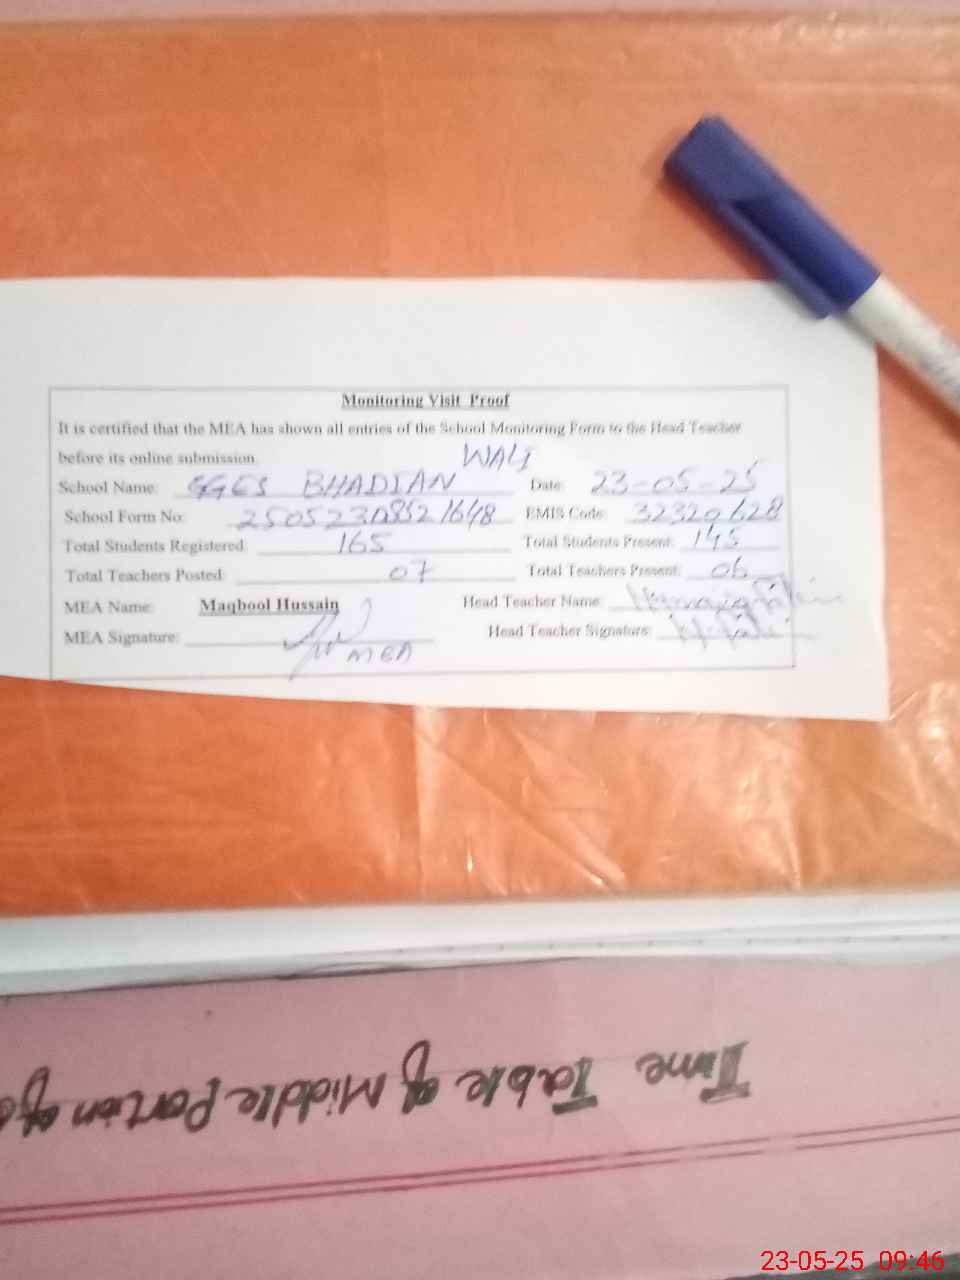 Monitoring Visit Proof
It is certified that the MEA has shown all entries of the School Monitoring Form to the Head Teacher
before its online submission.
WALI
School Name: GGES BHADIAN Date: 23-05-25
School Form No: EMIS Code: 32320628
Total Students Registered: 165 Total Students Present: 145
Total Teachers Posted: 07 Total Teachers Present: 06
MEA Name: Maqbool Hussain Head Teacher Name:
MEA Signature: MEA Head Teacher Signature:
Time Table of Middle Portion of
23-05-25 09:46